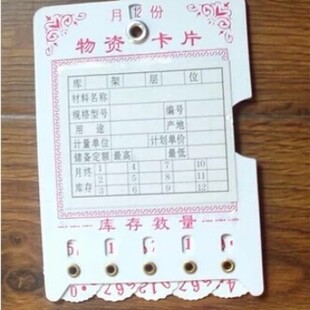 月12份
物资卡片
库 架 层 位
材料名称
规格型号 编号
用途 产地
计量单位 计划单价
储备定额 最高 最低
月终 1 4 7 10
2 5 8 11
库存 3 6 9 12
库存数量
5 1 1